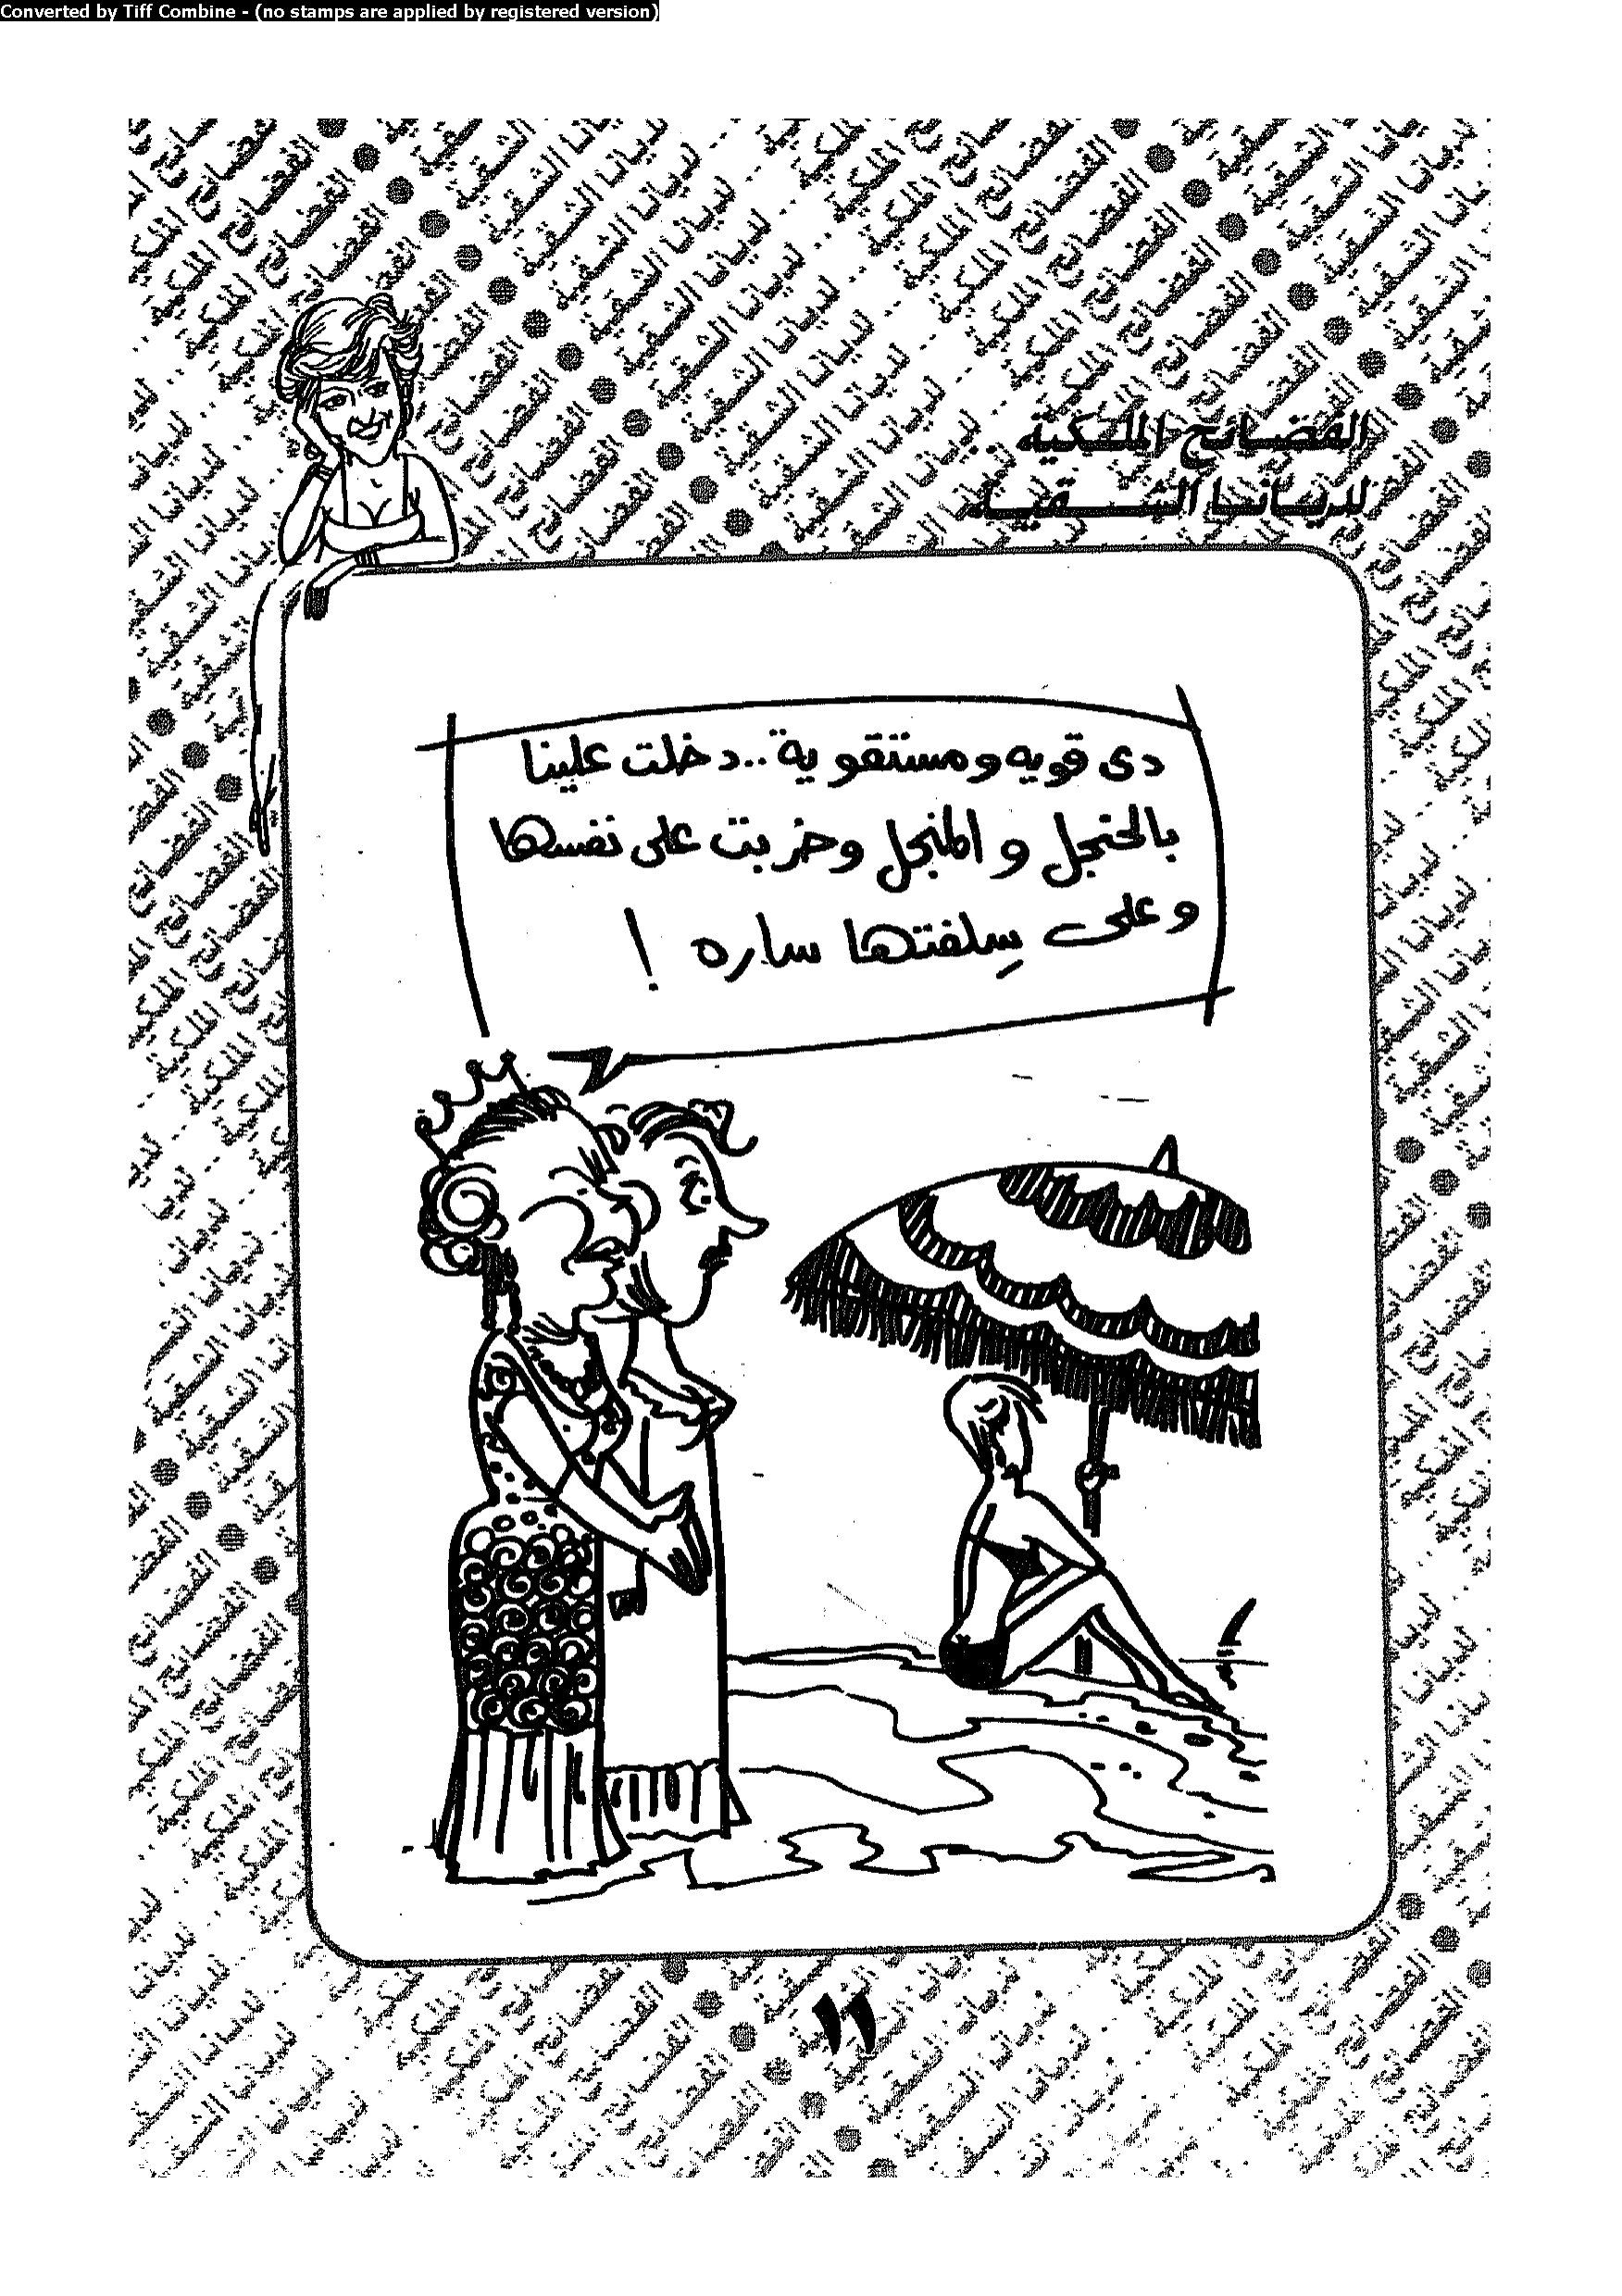 Converted by Tiff Combine - (no stamps are applied by registered version)
الفضائح الملكية ..
لديانا الشقية
دى قويه ومستقوية .. دخلت علينا
بالحنجل و المنجل وخربت على نفسها
وعلى سِلفتها ساره !
١٦